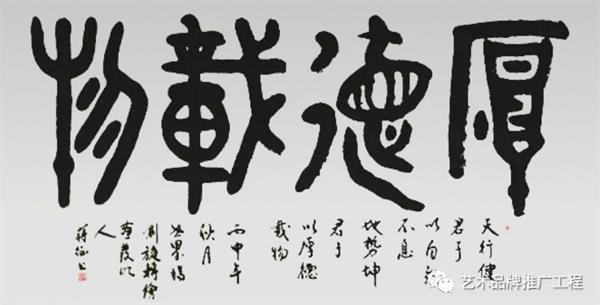 厚德載物
天行健
君子
以自
不息
地势坤
君子
以厚德
載物
丙申年
秋月
世界
旋转绘
人
艺术品牌推广工程